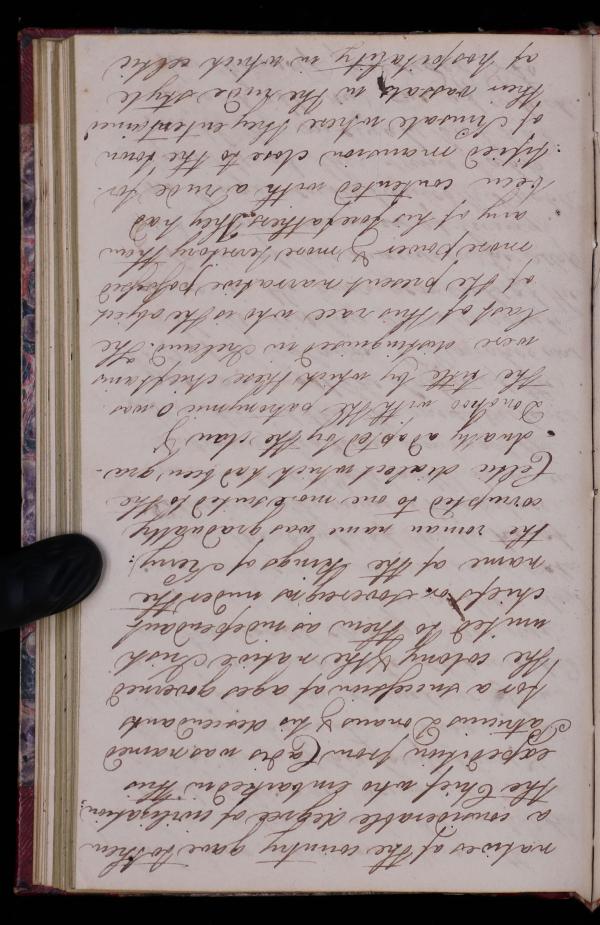 natives of the country gave to them
a considerable degree of civilization;
the Chief who embarked in this
expedition from Cadis was named
Patricius Donans & his descendants
for a succession of ages governed
the colony & the native Irish
united to them as independant
chiefs or sovereigns under the
name of the Kings of Kerry:
the roman name was gradually
corrupted to one more suited to the
Celtic dialect which had been gra-
dually adapted by the clan of
Donohoo with the patronymic O was
the title by which these chieftains
were distinguised in Ireland. The
last of this race who is the object
of the present narrative possessed
more power & more territory than
any of his forefathers. They had
been contented with a rude for-
tified mansion close to the town
of Kinsale where they entertained
their vassals in the rude style
of hospitality in which celtic